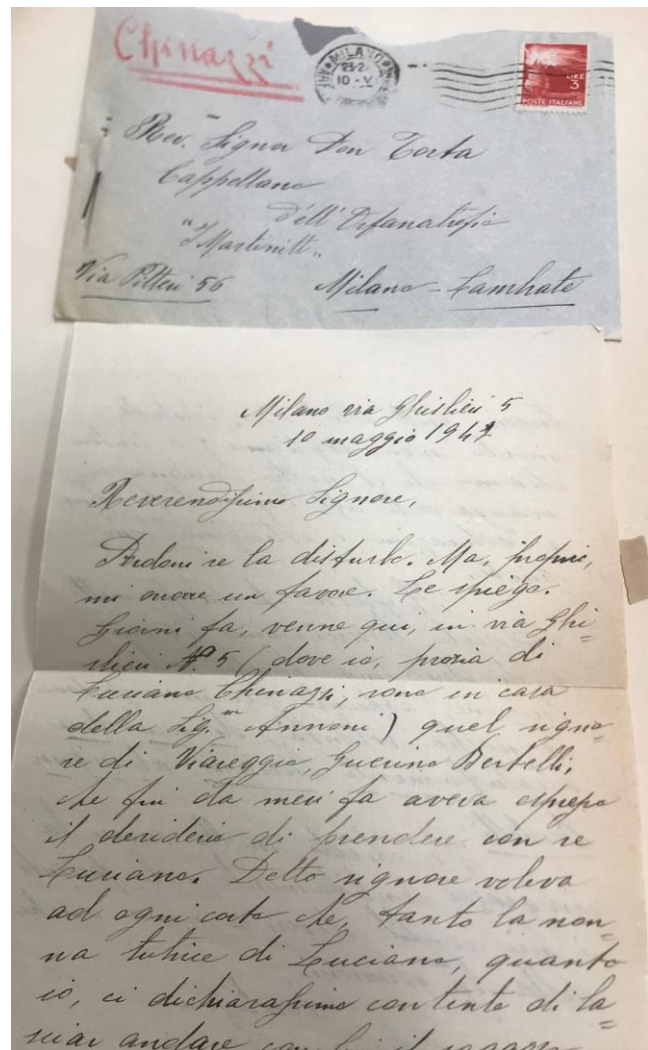 Chinazzi
MILANO
23-24
10-V
LIRE
3
POSTE ITALIANE
Rev. Signor Don Torta
Cappellano
dell'Orfanotrofio
"I Martinitt"
Via Pitteri 56 Milano - Lambrate
Milano via Ghislieri 5
10 maggio 1947
Reverendissimo Signore,
Perdoni se la disturbo. Ma, proprio,
mi occorre un favore. Le spiego.
Giorni fa, venne qui, in via Ghi=
slieri N° 5 (dove io, prozia di
Luciano Chinazzi, sono in casa
della Sig.ra Annoni) quel signo=
re di Viareggio, Guerino Bertelli,
che fin da mesi fa aveva espresso
il desiderio di prendere con se
Luciano. Detto signore voleva
ad ogni costo che, tanto la non=
na tutrice di Luciano, quanto
io, ci dichiarassimo contente di la=
sciar andare con lui il ragazzo